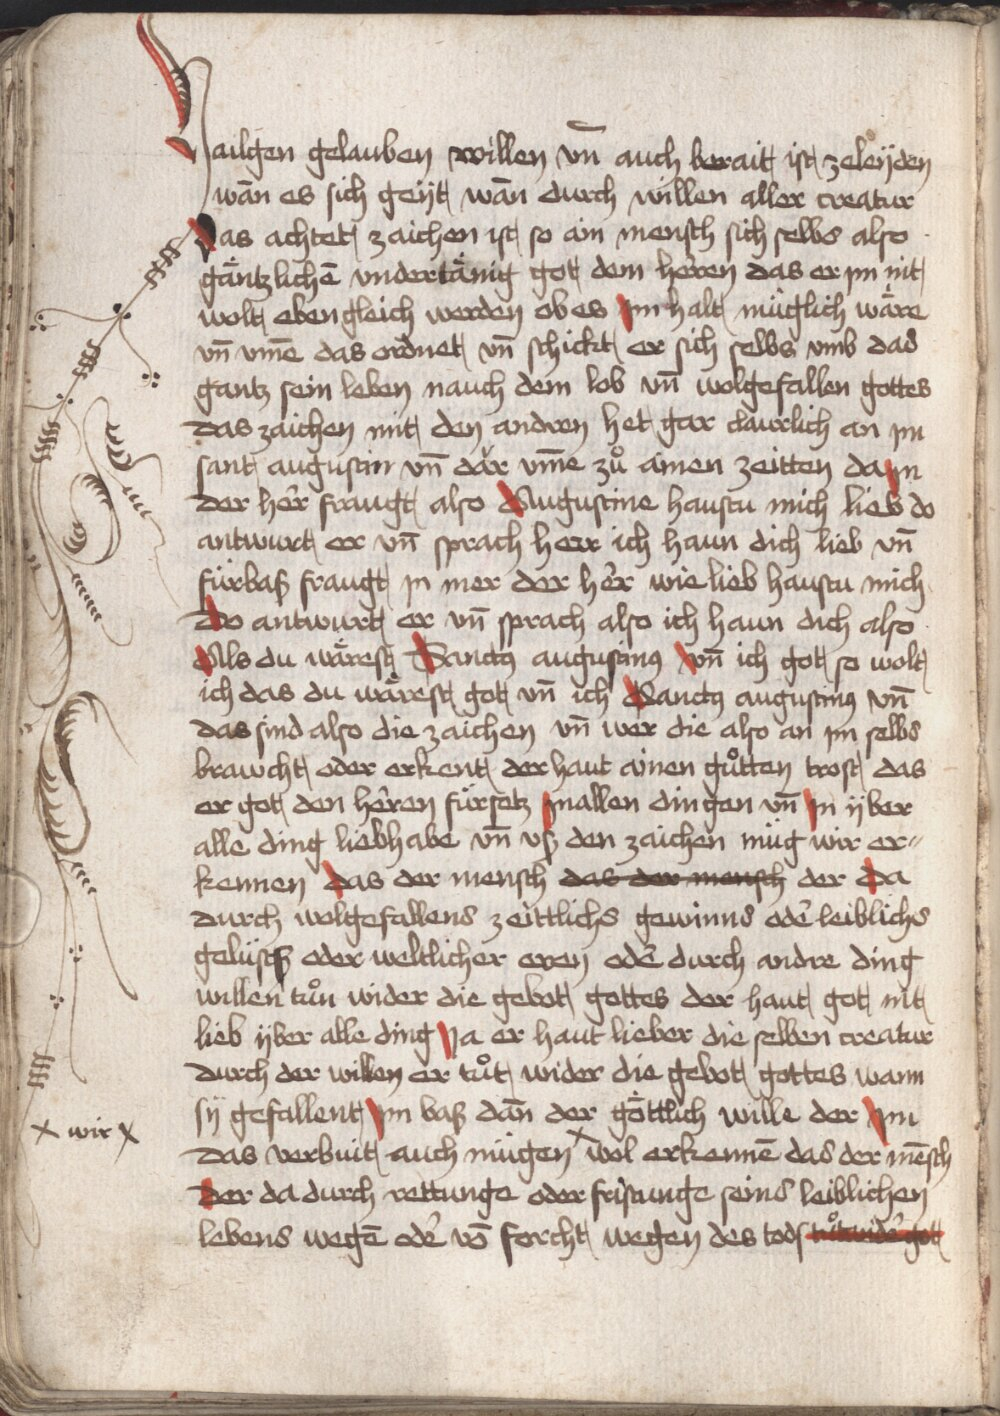 hailgen gelauben willen vn̄ auch berait ist zeleÿden
wān es sich geÿt wān durch willen aller creatur
Das achtet zaichen ist so ain mensch sich selbs also
gäntzlichē vndertänig got dem herren das er jm nit
wolt eben gleich werden ob es jm halt müglich wäre
vn̄ vm̄e das ordnet vn̄ schickt er sich selbs vmb das
gantz sein leben nauch dem lob vn̄ wolgefallen gottes
Das zaichen mit den andren het gar claurlich an jm
sant augustin vn̄ där vm̄e zů ainen zeitten da jn
der her fraugt also Augustine haustu mich lieb do
antwurt er vn̄ sprach herr ich haun dich lieb vn̄
fürbaß fraugt jn mer der her wie lieb haustu mich
Do antwurt er vn̄ sprach also ich haun dich also
Als du wärest Sanctꝰ augustinꝰ vn̄ ich got so wolt
ich das du wärest got vn̄ ich Sanctꝰ augustinꝰ vn̄
das sind also die zaichen vn̄ wer die also an jm selbs
brawcht oder erkent der haut ainen gůtten trost das
er got den herren fürsetz jn allen dingen vn̄ jn ÿber
alle ding liebhabe vn̄ vß den zaichen müg wir er〃
kennen das der mensch das der mensch der da
durch wolgefallens zeittlichs gewinns odē leiblichs
gelüsts oder weltlicher eren odē durch andre ding
willen tůn wider die gebot gottes der haut got nit
lieb ÿber alle ding Ja er haut lieber die selben creatur
durch der willen er tůt wider die gebot gottes wann
sÿ gefallent jm baß dān der göttlich wille der jm
das verbuit auch mügen x wol erkennē das der mēsch
x wir x
Der da durch rettunge oder fristunge seins leiblichen
lebens wegē odē vō forcht wegen des tods tůt widē got